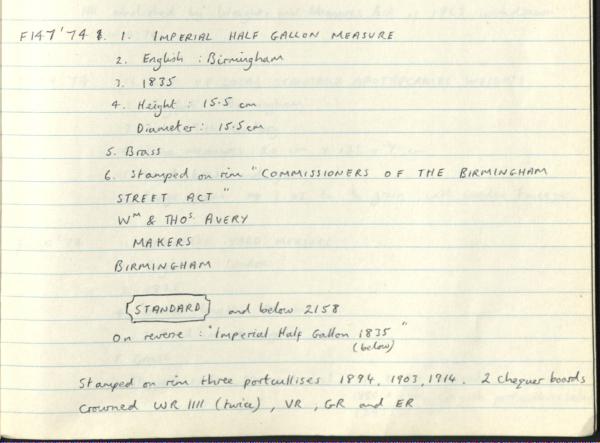 F147'74 &. 1. IMPERIAL HALF GALLON MEASURE
2. English : Birmingham
3. 1835
4. Height : 15.5 cm
Diameter : 15.5 cm
5. Brass
6. Stamped on rim "COMMISSIONERS OF THE BIRMINGHAM
STREET ACT"
WM & THOS AVERY
MAKERS
BIRMINGHAM
STANDARD and below 2158
On reverse : "Imperial Half Gallon 1835"
(below)
Stamped on rim three portcullises 1894, 1903, 1914. 2 chequer boards
Crowned WR IIII (twice), VR, GR and ER